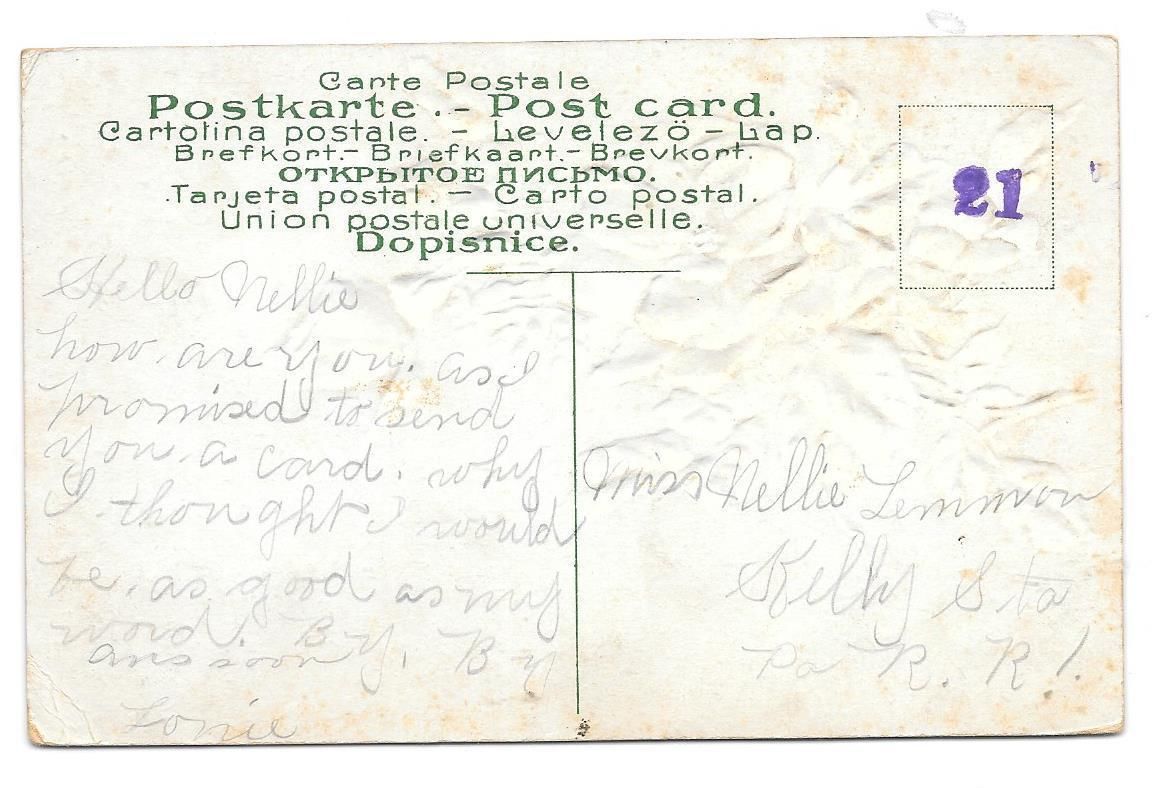 Carte Postale
Postkarte. - Post card.
Cartolina postale. - Levelezö - Lap.
Brefkort.- Briefkaart.- Brevkort.
ОТКРЫТОЕ ПИСЬМО.
Tarjeta postal. - Carto postal.
Union postale universelle.
Dopisnice.
21
Hello Nellie
how. are you. as I
promised to send
you. a card. why
I thought I would
be. as good as my
word. By. By
ans soon
Miss Nellie Lemmon
Kelly Sta
Pa R. R 1.